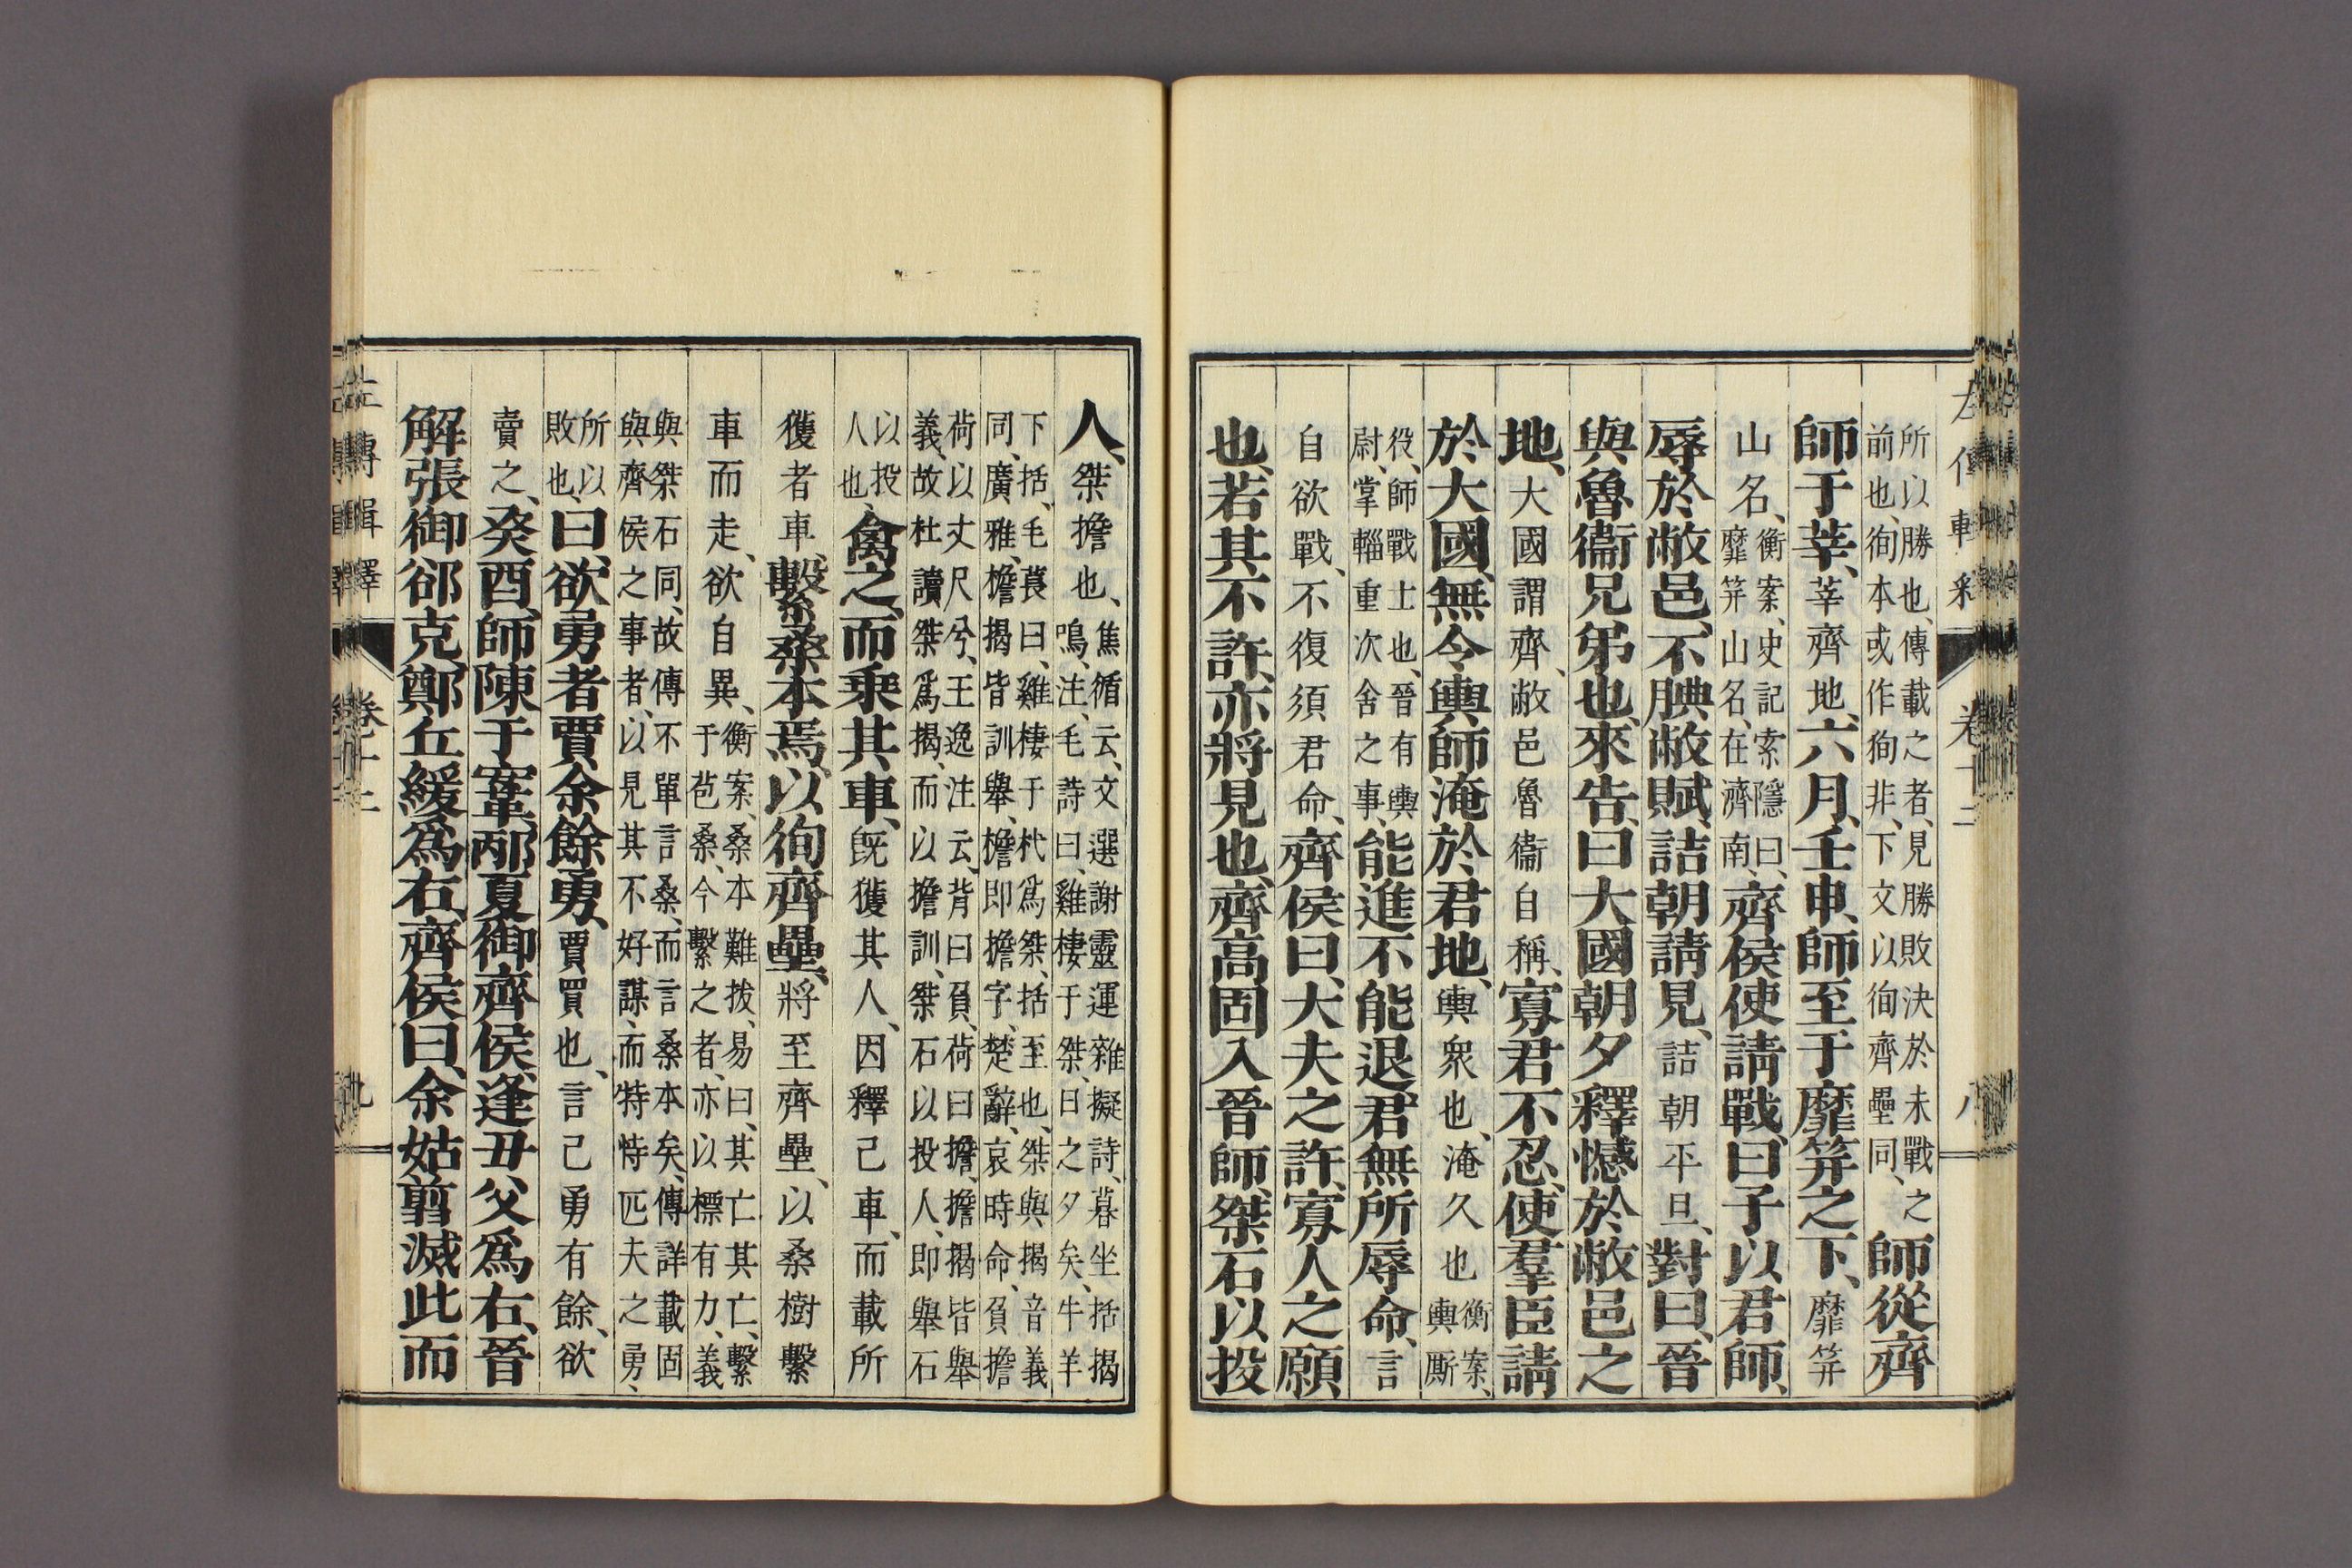 所以勝也、傳載之者、見勝敗決於未戰之前也、徇本或作狥非、下文以徇齊壘同、師從齊
師于莘、莘齊地、六月、壬申、師至于靡笄之下、靡笄
山名、衡案、史記索隱曰、靡笄山名、在濟南、齊侯使請戰、曰子以君師、
辱於敝邑、不腆敝賦、詰朝請見、詰朝平旦、對曰、晉
與魯衞兄弟也、來告、曰大國朝夕釋憾於敝邑之
地、大國謂齊、敝邑魯衞自稱、寡君不忍、使羣臣請
於大國、無令輿師淹於君地、輿衆也、淹久也衡案、輿厮
役、師戰士也、晉有輿尉、掌輜重次舍之事、能進不能退、君無所辱命、言
自欲戰、不復須君命、齊侯曰、大夫之許、寡人之願
也、若其不許、亦將見也、齊高固入晉師、桀石以投
人、桀擔也、焦循云、文選謝靈運雜擬詩、暮坐括揭鳴、注、毛詩曰、雞棲于桀、日之夕矣、牛羊
下括、毛萇曰、雞棲于杙爲桀、括至也、桀與揭音義同、廣雅、擔揭皆訓舉、擔即擔字、楚辭、哀時命、負擔
荷以丈尺兮、王逸注云、背曰負、荷曰擔、擔揭皆舉義、故杜讀桀爲揭、而以擔訓、桀石以投人、即舉石
以投人也、禽之、而乘其車、旣獲其人、因釋己車、而載所
獲者車、繫桑本焉、以徇齊壘、將至齊壘、以桑樹繫
車而走、欲自異、衡案、桑本難拔、易曰、其亡其亡、繫于苞桑、今繫之者、亦以標有力、義
與桀石同、故傳不單言桑、而言桑本矣、傳詳載固與齊侯之事者、以見其不好謀、而特恃匹夫之勇、
所以敗也、曰、欲勇者賈余餘勇、賈買也、言己勇有餘、欲
賣之、癸酉、師陳于鞌、邴夏御齊侯、逢丑父爲右、晉
解張御郤克、鄭丘緩爲右、齊侯曰、余姑翦滅此而